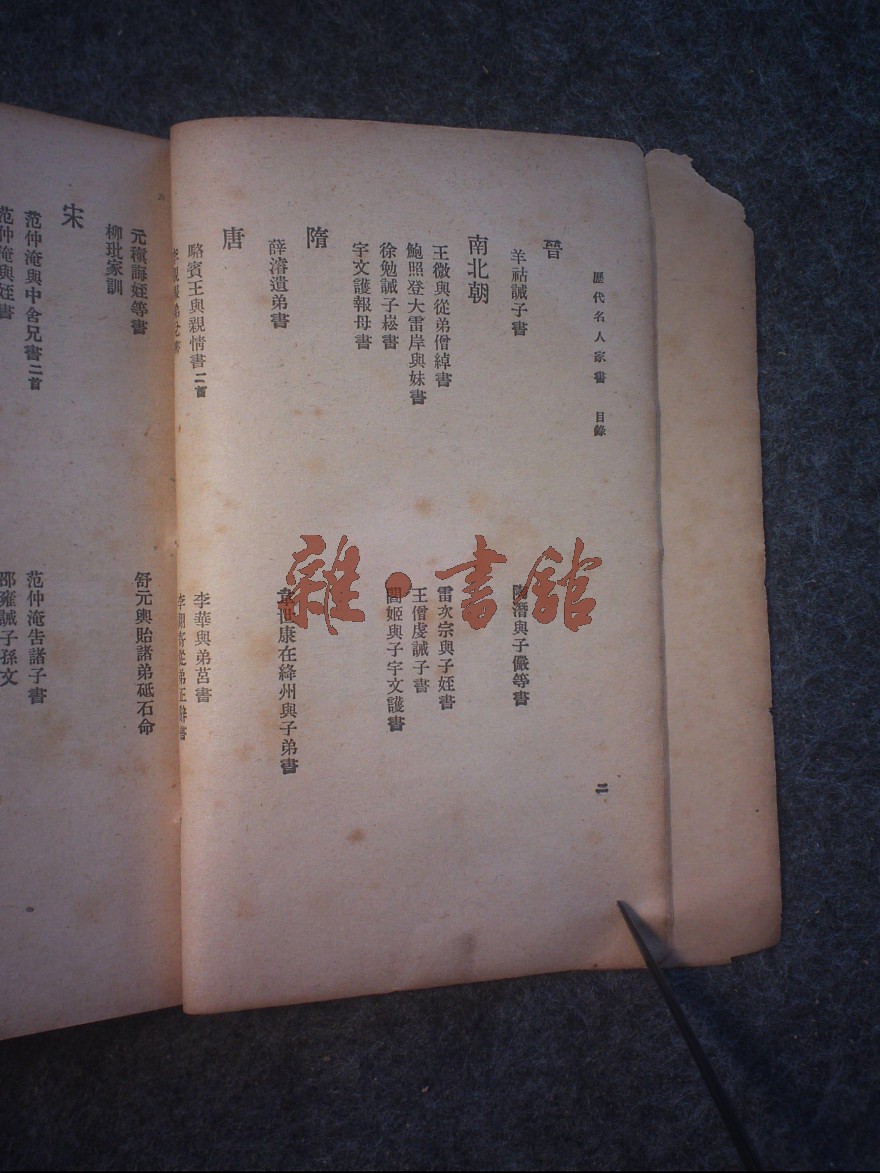 歷代名人家書　目錄
二
晉
羊祜誡子書
陶潛與子儼等書
南北朝
王微與從弟僧綽書
雷次宗與子姪書
鮑照登大雷岸與妹書
王僧虔誡子書
徐勉誡子崧書
閻姬與子宇文護書
宇文護報母書
隋
薛濬遺弟書
韋世康在絳州與子弟書
唐
駱賓王與親情書二首
李華與弟莒書
元稹誨姪等書
舒元輿貽諸弟砥石命
柳玭家訓
宋
范仲淹與中舍兄書二首
范仲淹告諸子書
范仲淹與姪書
邵雍誡子孫文
雜·書館